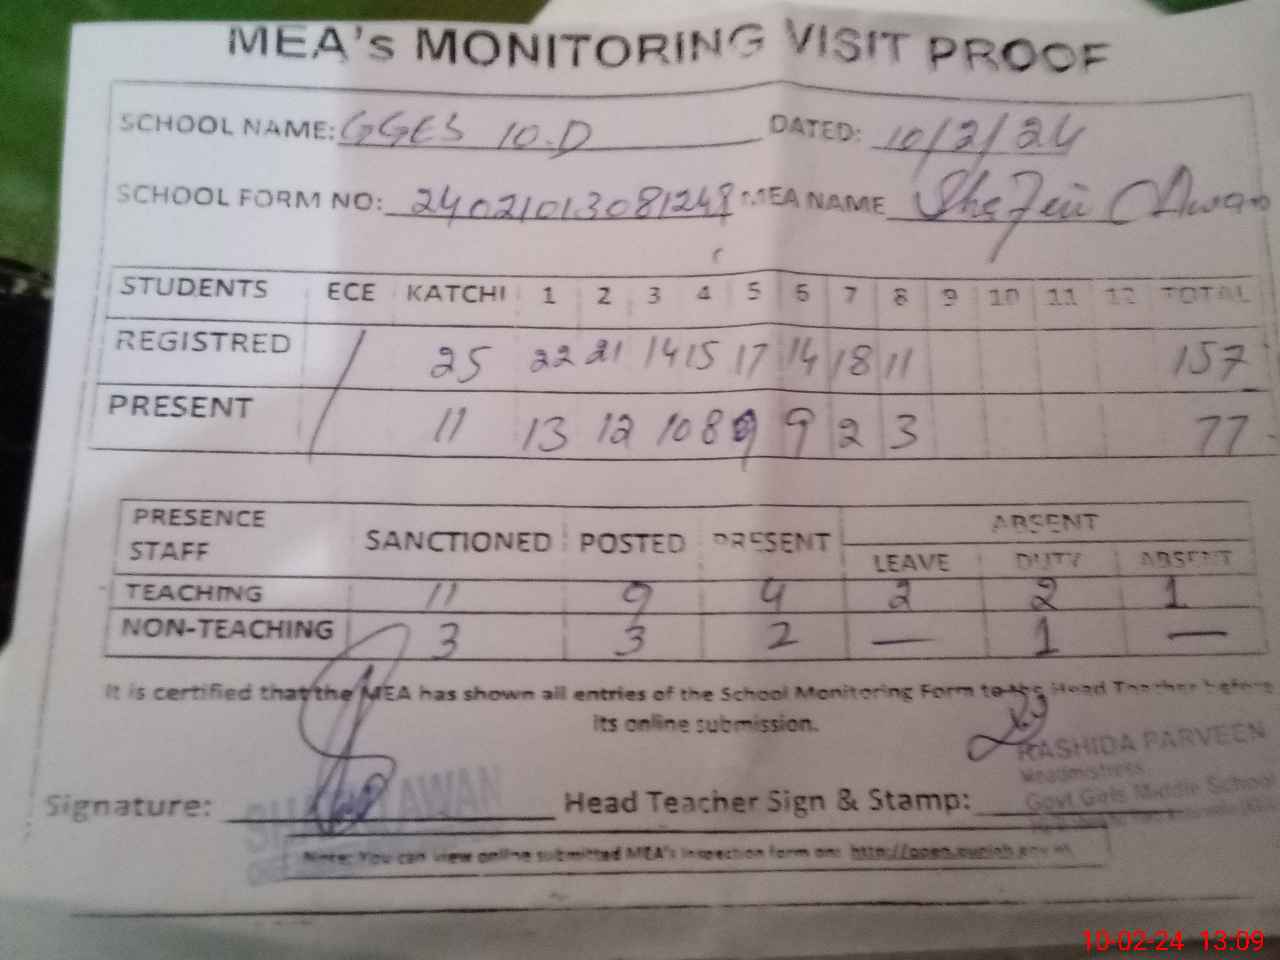 MEA's MONITORING VISIT PROOF
SCHOOL NAME: GGES 10.D DATED: 10/2/24
SCHOOL FORM NO: 24021013081248 MEA NAME Awan
STUDENTS ECE KATCHI 1 2 3 4 5 6 7 8 9 10 11 12 TOTAL
REGISTRED 25 22 21 14 15 17 14 18 11 157
PRESENT 11 13 12 10 8 9 9 2 3 77
PRESENCE STAFF SANCTIONED POSTED PRESENT ABSENT
LEAVE DUTY ABSENT
TEACHING 11 9 4 2 2 1
NON-TEACHING 3 3 2 — 1 —
It is certified that the MEA has shown all entries of the School Monitoring Form to the Head Teacher before
its online submission.
RASHIDA PARVEEN
Headmistress
Govt Girls Middle School
Signature: AWAN Head Teacher Sign & Stamp:
Note: You can view online submitted MEA's inspection form on: http://open.punjab.gov.pk
10-02-24 13:09